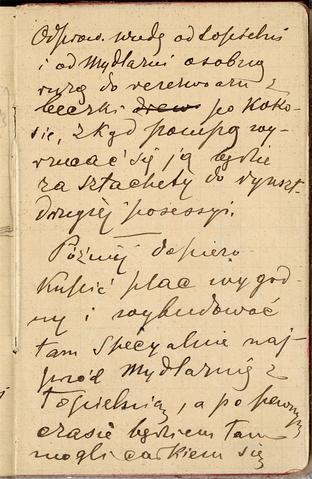 Odprow. wodę od topielni
i od Mydlarni osobną
rurą do rezerwoaru z
beczki drew po Koko-
sie, zkąd pompą wy-
rzucać się ją będzie
za sztachety do rynszt.
drugiéj posessyi.
Późniéj dopiero
Kupić plac wygod-
ny i wybudować
tam specyalnie naj-
przód Mydlarnię z
Topielnią, a po pewnym
czasie będziem tam
mogli całkiem się